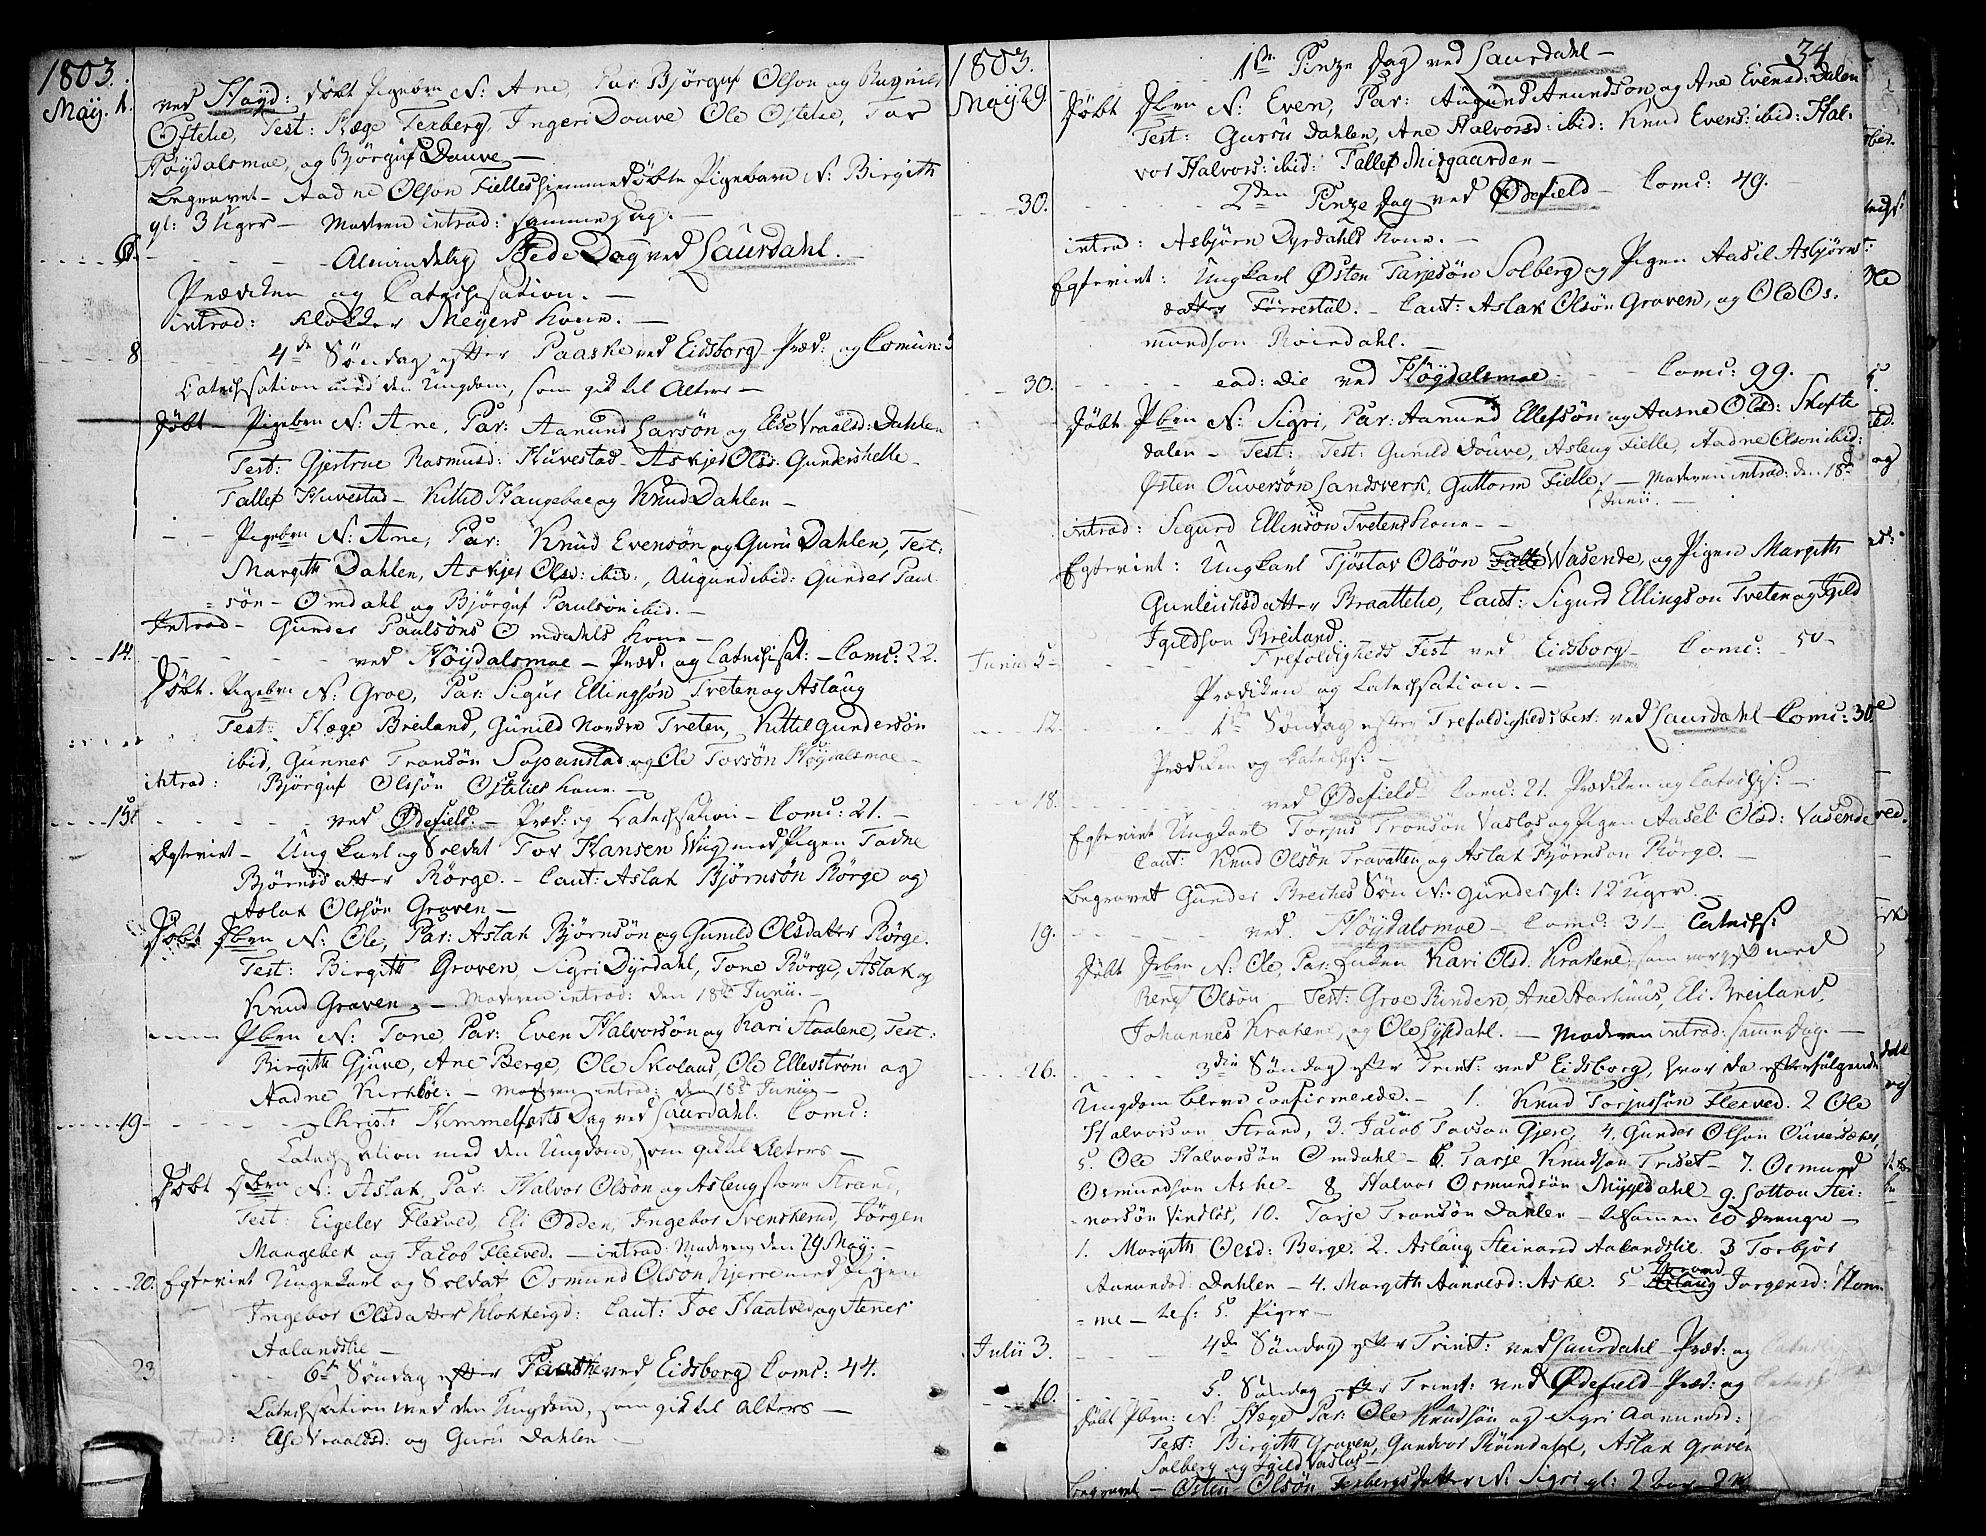 1803.
May. 1.
ved Høyd: døbt Pigebrn N: Ane, Par: Bjørguf Olson og Ragnild
Ostelie, Test: Hæge Texberg, Ingeri Douve Ole Ostelie, Tor
Høydalsmoe, og Bjørguf Douve —
Begravet — Aadne Olson Fielles hiemmedøbte Pigebarn N: Birgith
gl: 3 Uger — Moderen introd: samme Dag. —
6. Almindelig Bede Dag ved Laurdahl. —
Prædiken og Catechisation. —
introd: Klokker Meyers Kone. —
8 4de Søndag efter Paaske ved Eidsborg Præd: og Comun:
Catechisation med den Ungdom, som gik til Alters —
Døbt — Pigebrn N: Ane, Par: Aanund Larsøn og Else Vraalsd: Dahlen
Test: Gjertrue Rasmusd: Huvestad — Askjer Olsd: Gundershelle
Tallef Huvestad — Kittil Haugeboe og Knud Dahlen —
— Pigebrn N: Ane, Par: Knud Evensøn og Guru Dahlen, Test:
Margith Dahlen, Askjer Olsd: ibid:, Augund ibid: Gunder Paul
=søn — Omdahl og Bjørguf Paulsøn ibid. —
Introd — Gunder Paulsøns Omdahls Kone —
14. ved Høydalsmoe — Præd: og Catechisat: — Comc: 22.
Døbt. Pigebrn N: Groe, Par: Sigur Ellingsøn Tveten og Aslaug
Test: Hæge Breiland, Gunild Nordre Tveten, Kittil Gundersøn
ibid, Gunner Tronsøn Sopanstad og Ole Torsøn Høydalsmoe —
introd: Bjørguf Olsøn Ostelies Kone —
15. ved Ødefield. — Præd: og Catechisation — Comc: 21. —
Egteviet — Ungkarl og Soldat Tov Hansen Wiig med Pigen Tadne
Bjørnsdatter Rørge. — Caut: Aslak Bjørnsøn Rørge og
Aslak Olsøn Groven —
Døbt Dbrn N: Ole, Par: Aslak Bjørnsøn og Gunild Olsdatter Rørge.
Test: Birgith Groven, Sigri Dyrdahl, Tone Rørge, Aslak og
Knud Groven. — Moderen introd: den 18de Junii. —
Pbrn N: Tone, Par: Even Halvorsøn og Kari Staalene, Test:
Birgith Gjuve, Ane Berge, Ole Skolaus, Ole Ellevstrøm og
Aadne Kirkboe. — Moderen introd: den 18de Junii —
19 — Christi Himmelfarts Dag ved Laurdahl. Comc:
Catechisation med den Ungdom, som gik til Alters —
Døbt Dbrn N: Aslak, Par: Halvor Olsøn og Asleug store Strand,
Test: Eigelev Flesved, Eli Odden, Ingebor Svenskerud, Jørgen
Maagebek og Jacob Flesved. — introd: Moderen den 29 May: —
20. Egteviet Ungekarl og Soldat Osmund Olsøn Hjerre med Pigen
Ingebor Olsdatter Klokkergd: Caut: Joe Haatved og Stener
Aalandslie —
23 6te Søndag efter Paaske ved Eidsborg Comc: 44.
Catechisation med den Ungdom, som gik til Alters —
introd: Else Vraalsd: og Guru Dahlen —
34
1803.
1ste Pinze Dag ved Laurdahl —
May 29. Døbt Dbrn N: Even, Par: Augund Aanundsøn og Ane Evensd: Dalen
Test: Guru Dahlen, Ane Halvorsd: ibid: Knud Evens: ibid: Hal-
vor Halvors: ibid: Tallef Midgaarden —
30. 2den Pinze Dag ved Ødefield — Comc: 49.
introd: Asbjørn Dyrdahls Kone. —
Egteviet: Ungkarl Østen Tarjesøn Solberg og Pigen Aasil Asbjørns-
datter Førrestøl. — Caut: Aslak Olsøn Groven, og Ole Os-
mundson Roindahl. —
30. eod: die ved Høydalsmoe — Comc: 99.
Døbt Pbrn N: Sigri, Par: Aanund Ellefsøn og Aasne Olsd: Skofte
dalen — Test: Test: Gunild Douve, Asleug Fielle, Aadne Olson ibid:
Østen Ouversøn Landsverk, Guttorm Fielle. — Moderen introd: den 18de
Junii. —
introd: Sigurd Ellinsøn Tvetens Kone —
Egteviet: Ungkarl Tjøstov Olsøn Fielle Wasende, og Pigen Margith
Gunleichsdatter Braattelie, Caut: Sigurd Ellingson Tveten og Igild
Igildson Breiland.
Junii 5 — Trefoldigheds Fest ved Eidsborg — Comc: 50 —
Prædiken og Catechisation. —
12. 1ste Søndag efter Trefoldigheds best: ved Laurdahl — Comc: 30
Prædiken og Catechis: —
18. ved Ødefield — Comc: 21. Prædiken og Catechis: —
Egteviet Ungkarl Torjus Tronsøn Vaslos og Pigen Aasel Olsd: Vasende
Caut: Knud Olsøn Travatten og Aslak Bjørnson Rørge. —
Begravet Gunder Breches Søn N: Gunder gl: 12 Uger.
19. ved Høydalsmoe — Comc: 31 — Catechis:
Døbt N: Ole, Par: Enken Kari Olsd. Krakene, som
Olsøn — Test: Groe Rinden, Ane Aarhuus, Eli Breiland,
Johannes Krakene, og Ole Lysdahl. — Moderen introd: samme Dag —
26. 3die Søndag efter Trint: ved Eidsborg, hvor da efterfølgende
Ungdom bleve confirmerede. — 1. Knud Torjussøn Flesved. 2 Ole
Halvorson Strand, 3. Jacob Tovson Gjere, 4. Gunder Olson Ouversæker,
5. Ole Halvorsøn Omdahl — 6. Tarje Knudson Triset — 7. Osmund
Osmundson Aske — 8 Halvor Osmundsøn Myggedahl — 9. Lotton Stei-
norsøn Vindlos, 10. Tarje Tronsøn Dahlen — tilsammen 10 Drenge —
1. Margith Olsd: Berge. 2. Aslaug Steinarsd Aalandslie. 3 Torbjør
Aanundsd Dahlen — 4. Margith Aannesd: Aske. 5 Aslaug Jorgensd: Hom
=me — 5. Piger —
Julii 3. 4de Søndag efter Trint: ved Laurdahl Præd: og
10. 5. Søndag efter Trint: ved Ødefield Præd: og Catech
Døbt Pbrn: N: Hæge Par: Ole Knudsøn og Sigri Aanundsd:
Test: Birgith Groven, Gunvor Roindahl, Aslak Groven
Solberg og Igild Vaslos —
Begravet — Østen Olsøn Texbergs Datter N: Sigri gl: 2